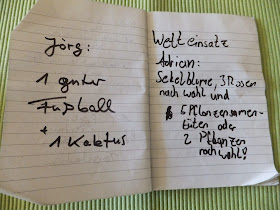 Jörg:
1 guter
Fußball
+
1 Kaktus
Wetteinsatz
Adrian:
Sekelblume, 3 Rosen
nach wahl und
6 Pflanzensamen-
tüten oder
2 Pflanzen
nach wahl!